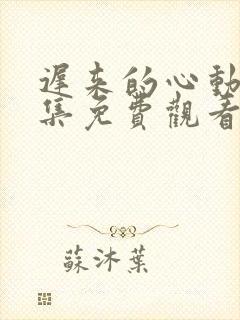 遲來的心動
集免費觀看
蘇沐葉